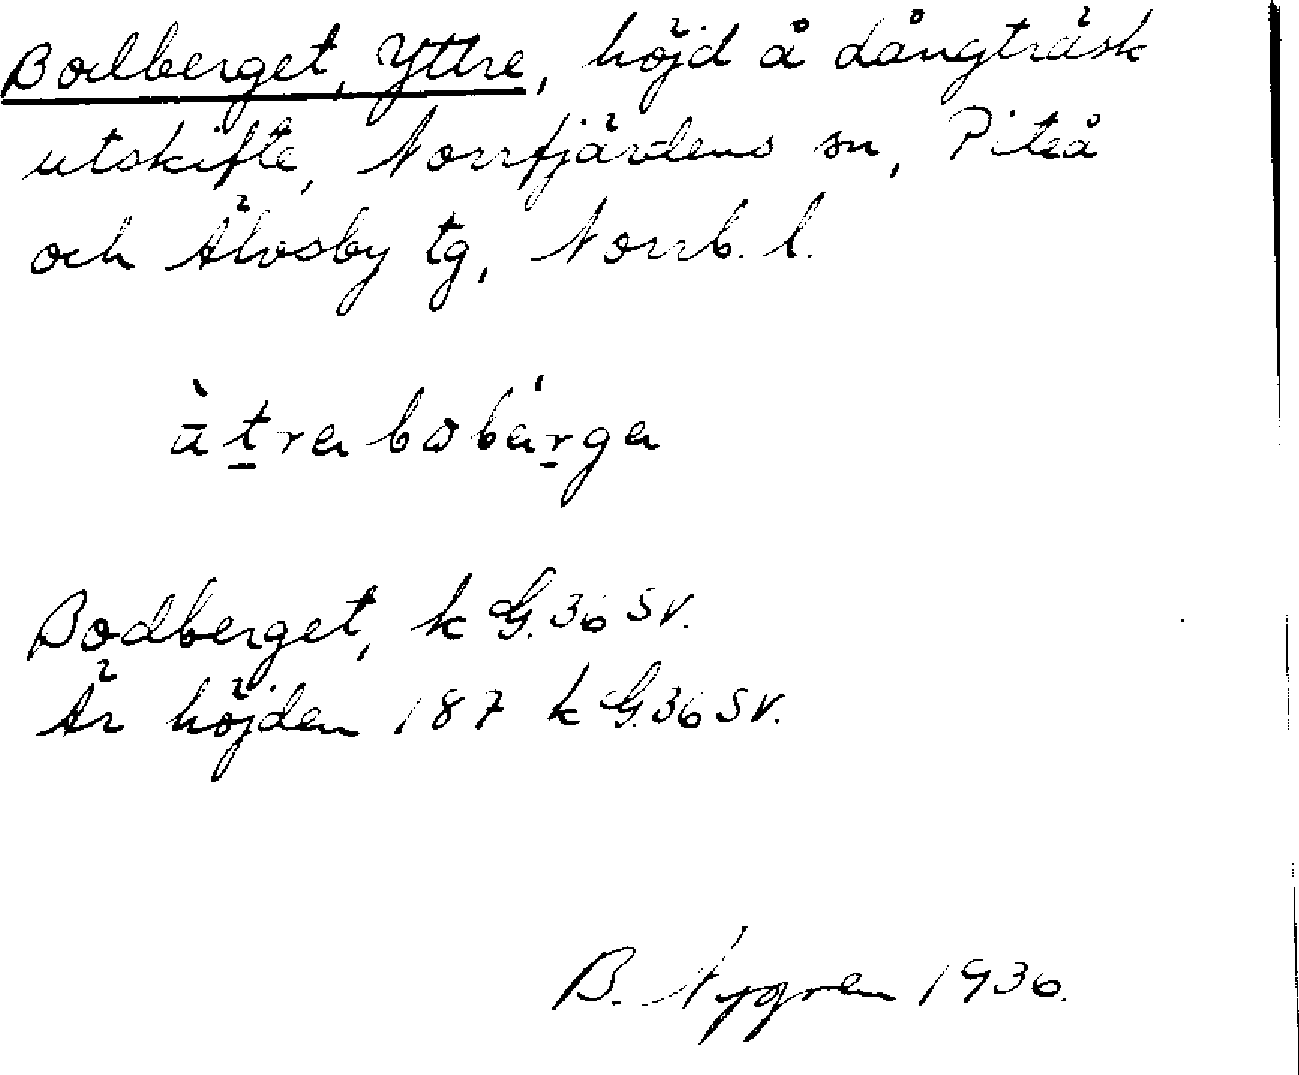 Bodberget, Yttre, höjd å Långträsk
utskifte, Norrfjärdens sn, Piteå
och Älvsby tg, Norrb. l.
ὰtra bobárga
Bodberget, k G.36 SV.
Är höjden 187 k G.36 SV.
B. Nygren 1936.